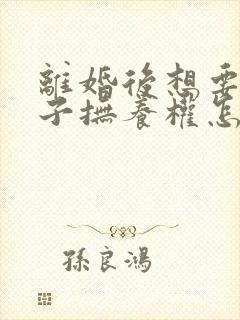 離婚後想要
子撫養權怎
孫良鴻